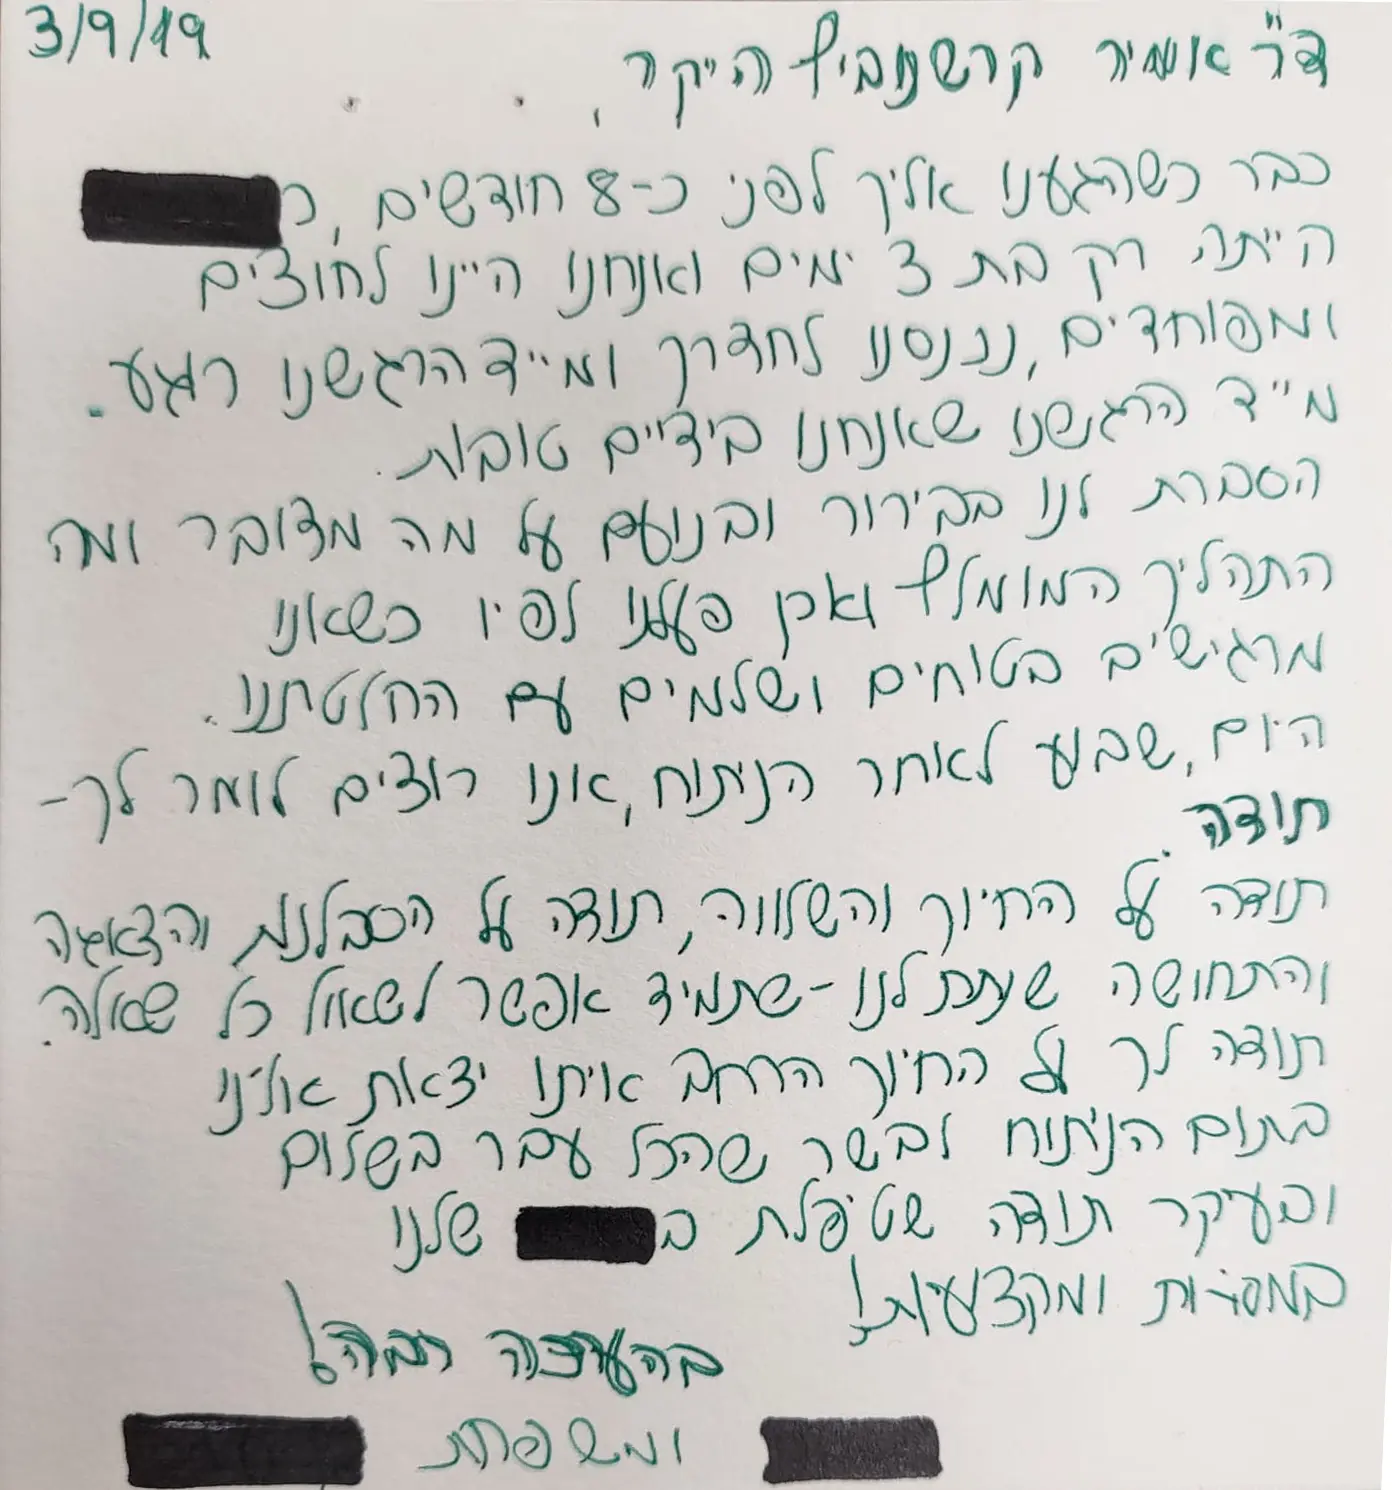 3/9/19
ד"ר אמיר קרשנוביץ היקר,
כבר כשהגענו אליך לפני כ-8 חודשים, כ
הייתה רק בת 3 ימים ואנחנו היינו לחוצים
ומפוחדים, נכנסנו לחדרך ומייד הרגשנו רוגע.
מייד הרגשנו שאנחנו בידיים טובות.
הסברת לנו בבירור ובנועם על מה מדובר ומה
התהליך המומלץ ואכן פעלנו לפיו כשאנו
מרגישים בטוחים ושלמים עם החלטתנו.
היום, שבוע לאחר הניתוח, אנו רוצים לומר לך-
תודה.
תודה על החיוך והשלווה, תודה על הסבלנות והדאגה
והתחושה שנתת לנו - שתמיד אפשר לשאול כל שאלה.
תודה לך על החיוך הרחב איתו יצאת אלינו
בתום הניתוח לבשר שהכל עבר בשלום
ובעיקר תודה שטיפלת ב שלנו
במסירות ומקצועיות!
בהערכה רבה!
ומשפחת